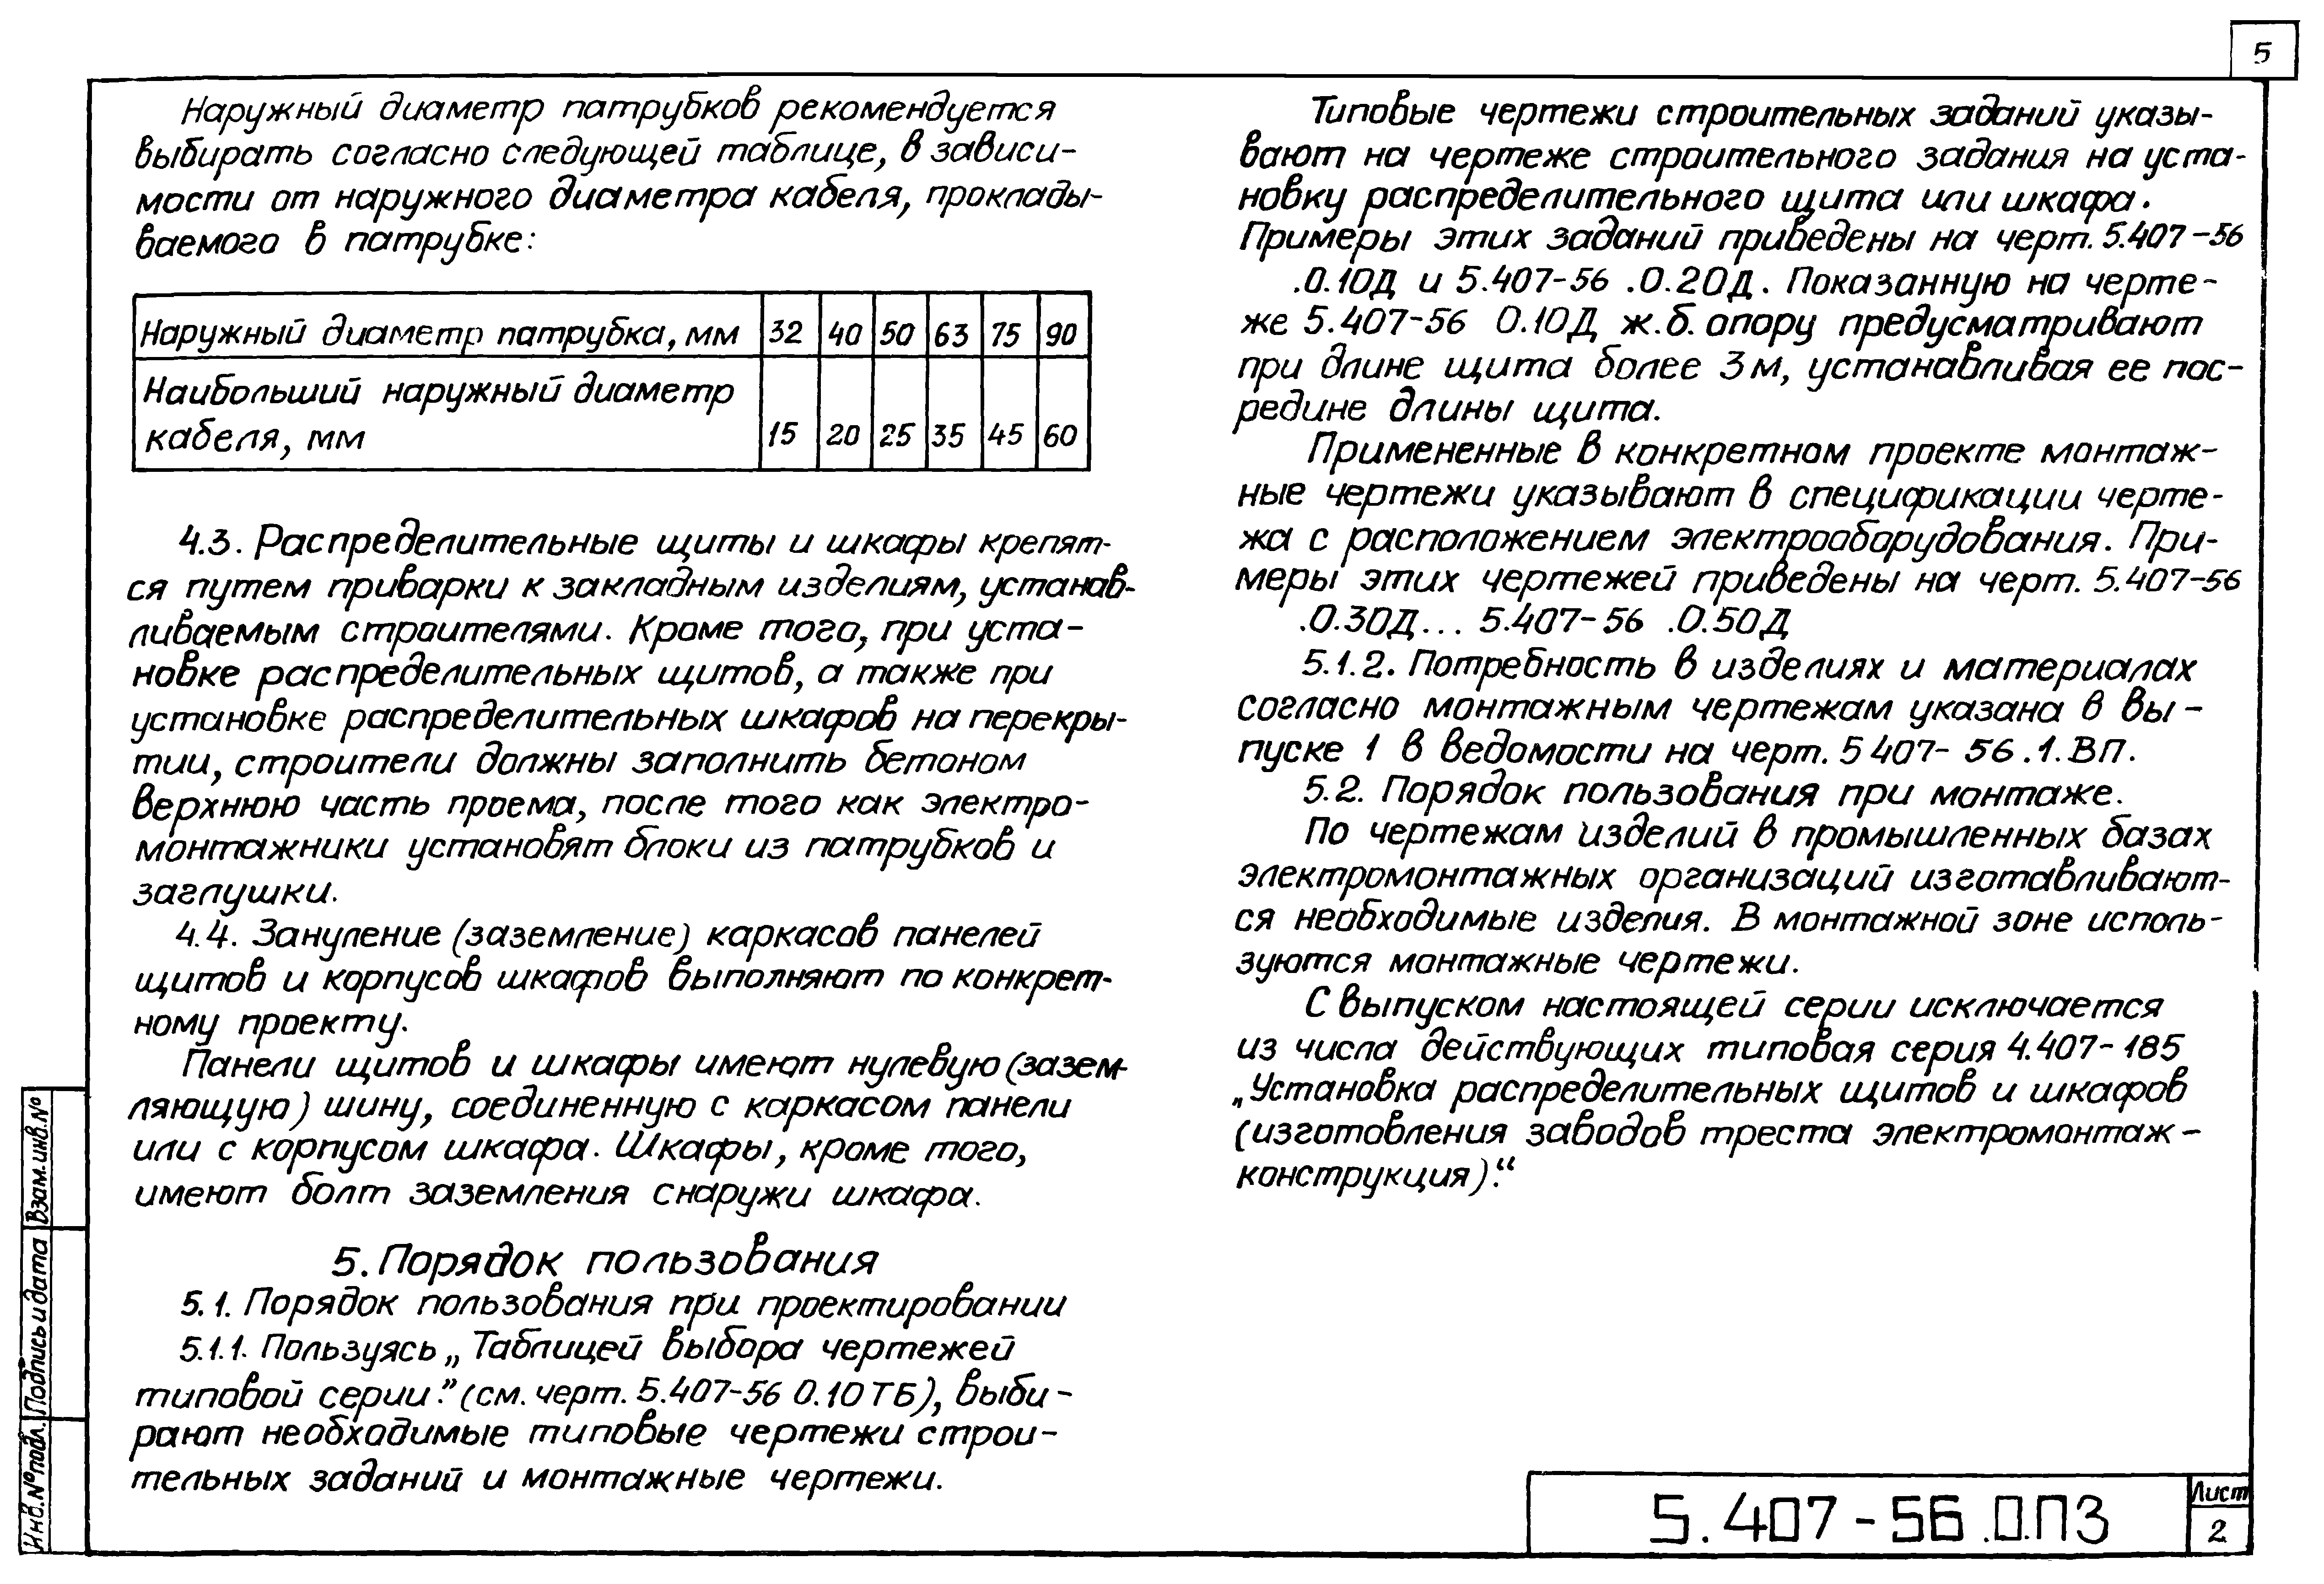 5
Наружный диаметр патрубков рекомендуется
выбирать согласно следующей таблице, в зависи-
мости от наружного диаметра кабеля, проклады-
ваемого в патрубке:
Наружный диаметр патрубка, мм 32 40 50 63 75 90
Наибольший наружный диаметр
кабеля, мм 15 20 25 35 45 60
4.3. Распределительные щиты и шкафы крепят-
ся путем приварки к закладным изделиям, устанав-
ливаемым строителями. Кроме того, при уста-
новке распределительных щитов, а также при
установке распределительных шкафов на перекры-
тии, строители должны заполнить бетоном
верхнюю часть проема, после того как электро-
монтажники установят блоки из патрубков и
заглушки.
4.4. Зануление (заземление) каркасов панелей
щитов и корпусов шкафов выполняют по конкрет-
ному проекту.
Панели щитов и шкафы имеют нулевую (зазем-
ляющую) шину, соединенную с каркасом панели
или с корпусом шкафа. Шкафы, кроме того,
имеют болт заземления снаружи шкафа.
5. Порядок пользования
5.1. Порядок пользования при проектировании
5.1.1. Пользуясь „Таблицей выбора чертежей
типовой серии." (см. черт. 5.407-56 0.10ТБ), выби-
рают необходимые типовые чертежи строи-
тельных заданий и монтажные чертежи.
Типовые чертежи строительных заданий указы-
вают на чертеже строительного задания на уста-
новку распределительного щита или шкафа.
Примеры этих заданий приведены на черт. 5.407-56
.0.10Д и 5.407-56 .0.20Д. Показанную на черте-
же 5.407-56 0.10Д ж.б. опору предусматривают
при длине щита более 3м, устанавливая ее пос-
редине длины щита.
Примененные в конкретном проекте монтаж-
ные чертежи указывают в спецификации черте-
жа с расположением электрооборудования. При-
меры этих чертежей приведены на черт. 5.407-56
.0.30Д... 5.407-56 .0.50Д
5.1.2. Потребность в изделиях и материалах
согласно монтажным чертежам указана в вы-
пуске 1 в ведомости на черт. 5 407-56.1.ВП.
5.2. Порядок пользования при монтаже.
По чертежам изделий в промышленных базах
электромонтажных организаций изготавливают-
ся необходимые изделия. В монтажной зоне исполь-
зуются монтажные чертежи.
С выпуском настоящей серии исключается
из числа действующих типовая серия 4.407-185
„Установка распределительных щитов и шкафов
(изготовления заводов треста электромонтаж-
конструкция)."
Взам.инв.№
Подпись и дата
Инв.№подл.
5.407-56.0.ПЗ
Лист
2